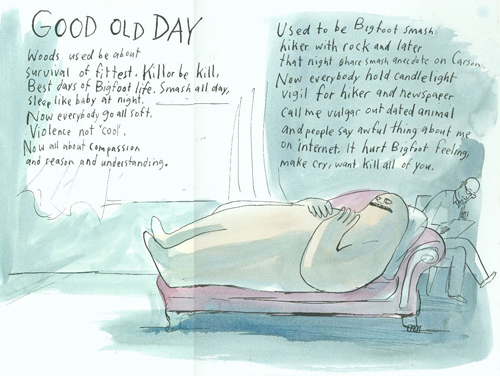 GOOD OLD DAY
Woods used be about
survival of fittest. Kill or be kill.
Best days of Bigfoot life. Smash all day,
sleep like baby at night.
Now everybody go all soft.
Violence not "cool".
Now all about compassion
and reason and understanding.
Used to be Bigfoot smash
hiker with rock and later
that night share smash anecdote on Carson.
Now everybody hold candlelight
vigil for hiker and newspaper
call me vulgar outdated animal
and people say awful thing about me
on internet. It hurt Bigfoot feeling,
make cry, want kill all of you.